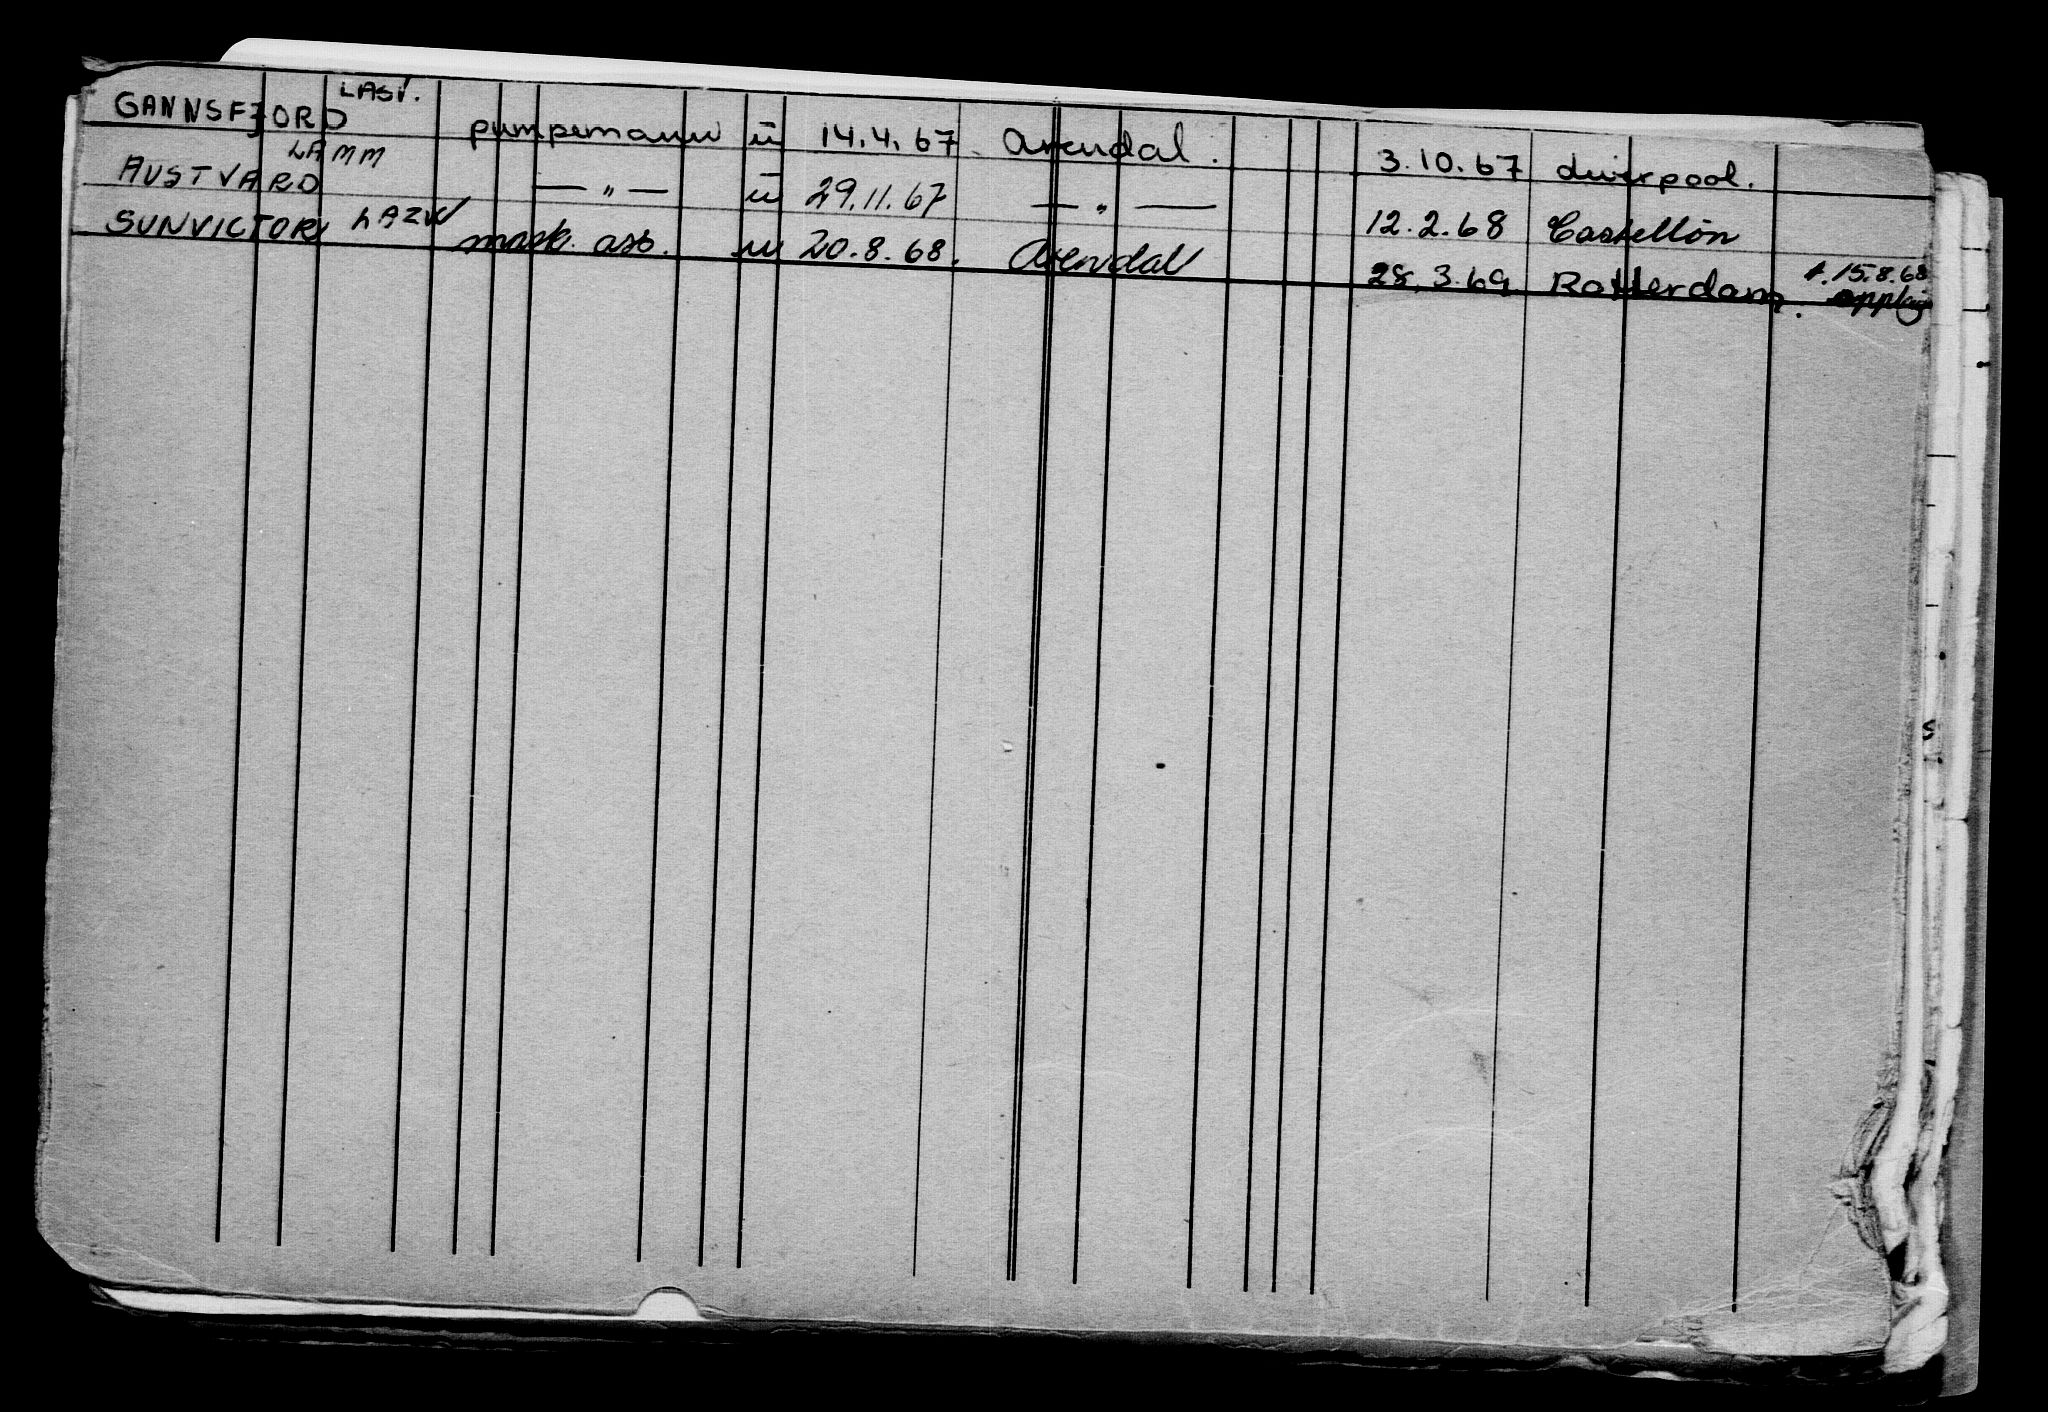 GANNSFJORD LASV. pumpemann u 14.4.67 Arendal. 3.10.67 Liverpool.
AUSTVARD LAMM — " — u 29.11.67 — " — 12.2.68 Castellón
SUNVICTORY LAZW mask. ass. u 20.8.68. Arendal 28.3.69 Rotterdam. f. 15.8.68